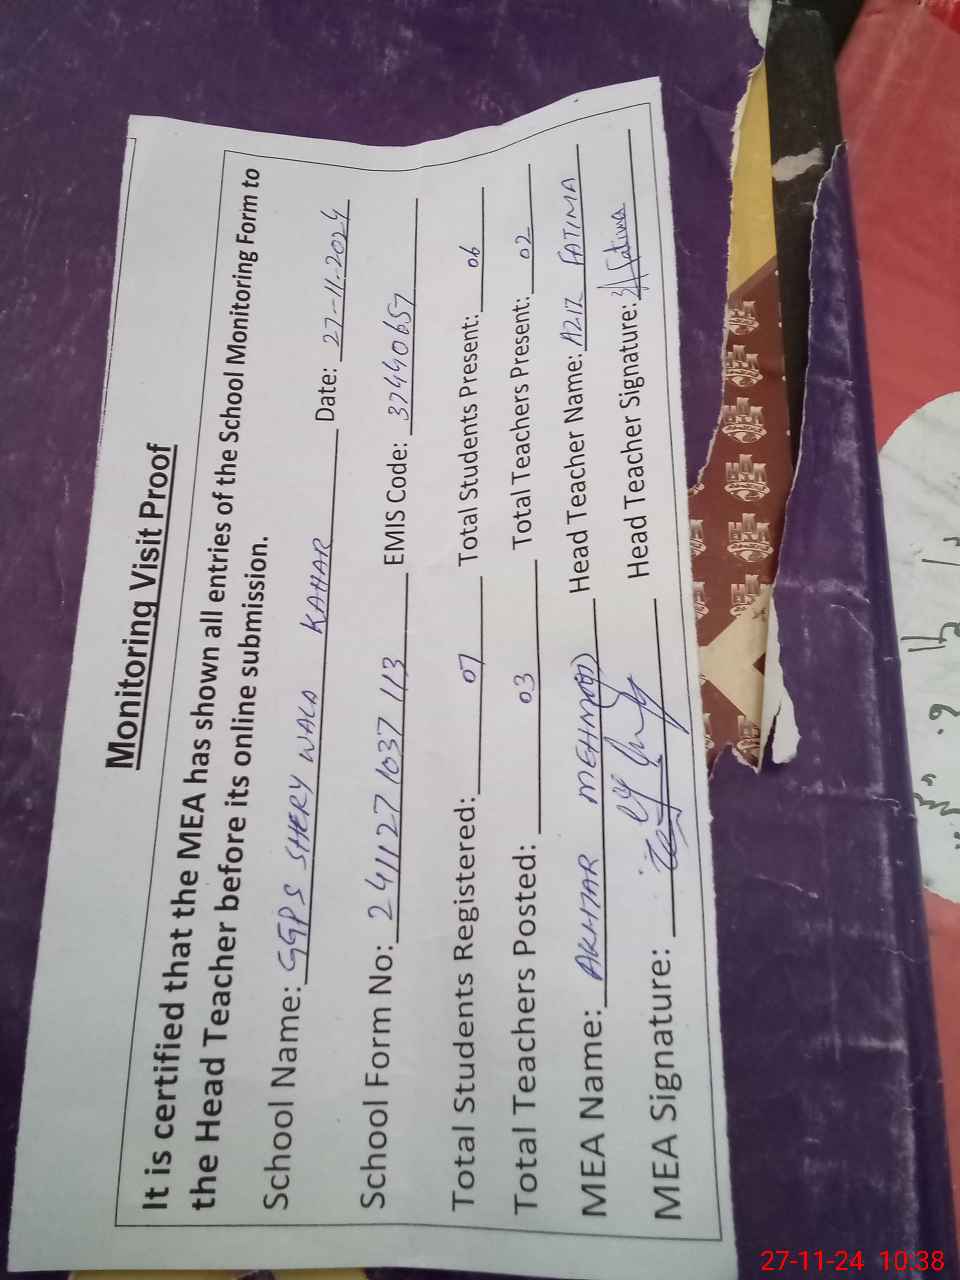 Monitoring Visit Proof
It is certified that the MEA has shown all entries of the School Monitoring Form to
the Head Teacher before its online submission.
School Name: GGPS SHERY WALA KAHAR Date: 27-11-2024
School Form No: 241127 1037 113 EMIS Code: 37440657
Total Students Registered: 07 Total Students Present: 06
Total Teachers Posted: 03 Total Teachers Present: 02
MEA Name: AKHTAR MEHMOOD Head Teacher Name: AZIZ FATIMA
MEA Signature: Head Teacher Signature: Fatima
27-11-24 10:38